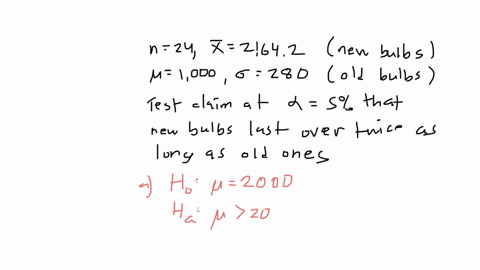 n=24, x̄=2164.2 (new bulbs)
μ=1,000, σ=280 (old bulbs)
Test claim at α=5% that
new bulbs last over twice as
long as old ones
a) H₀: μ=2000
Hₐ: μ>20